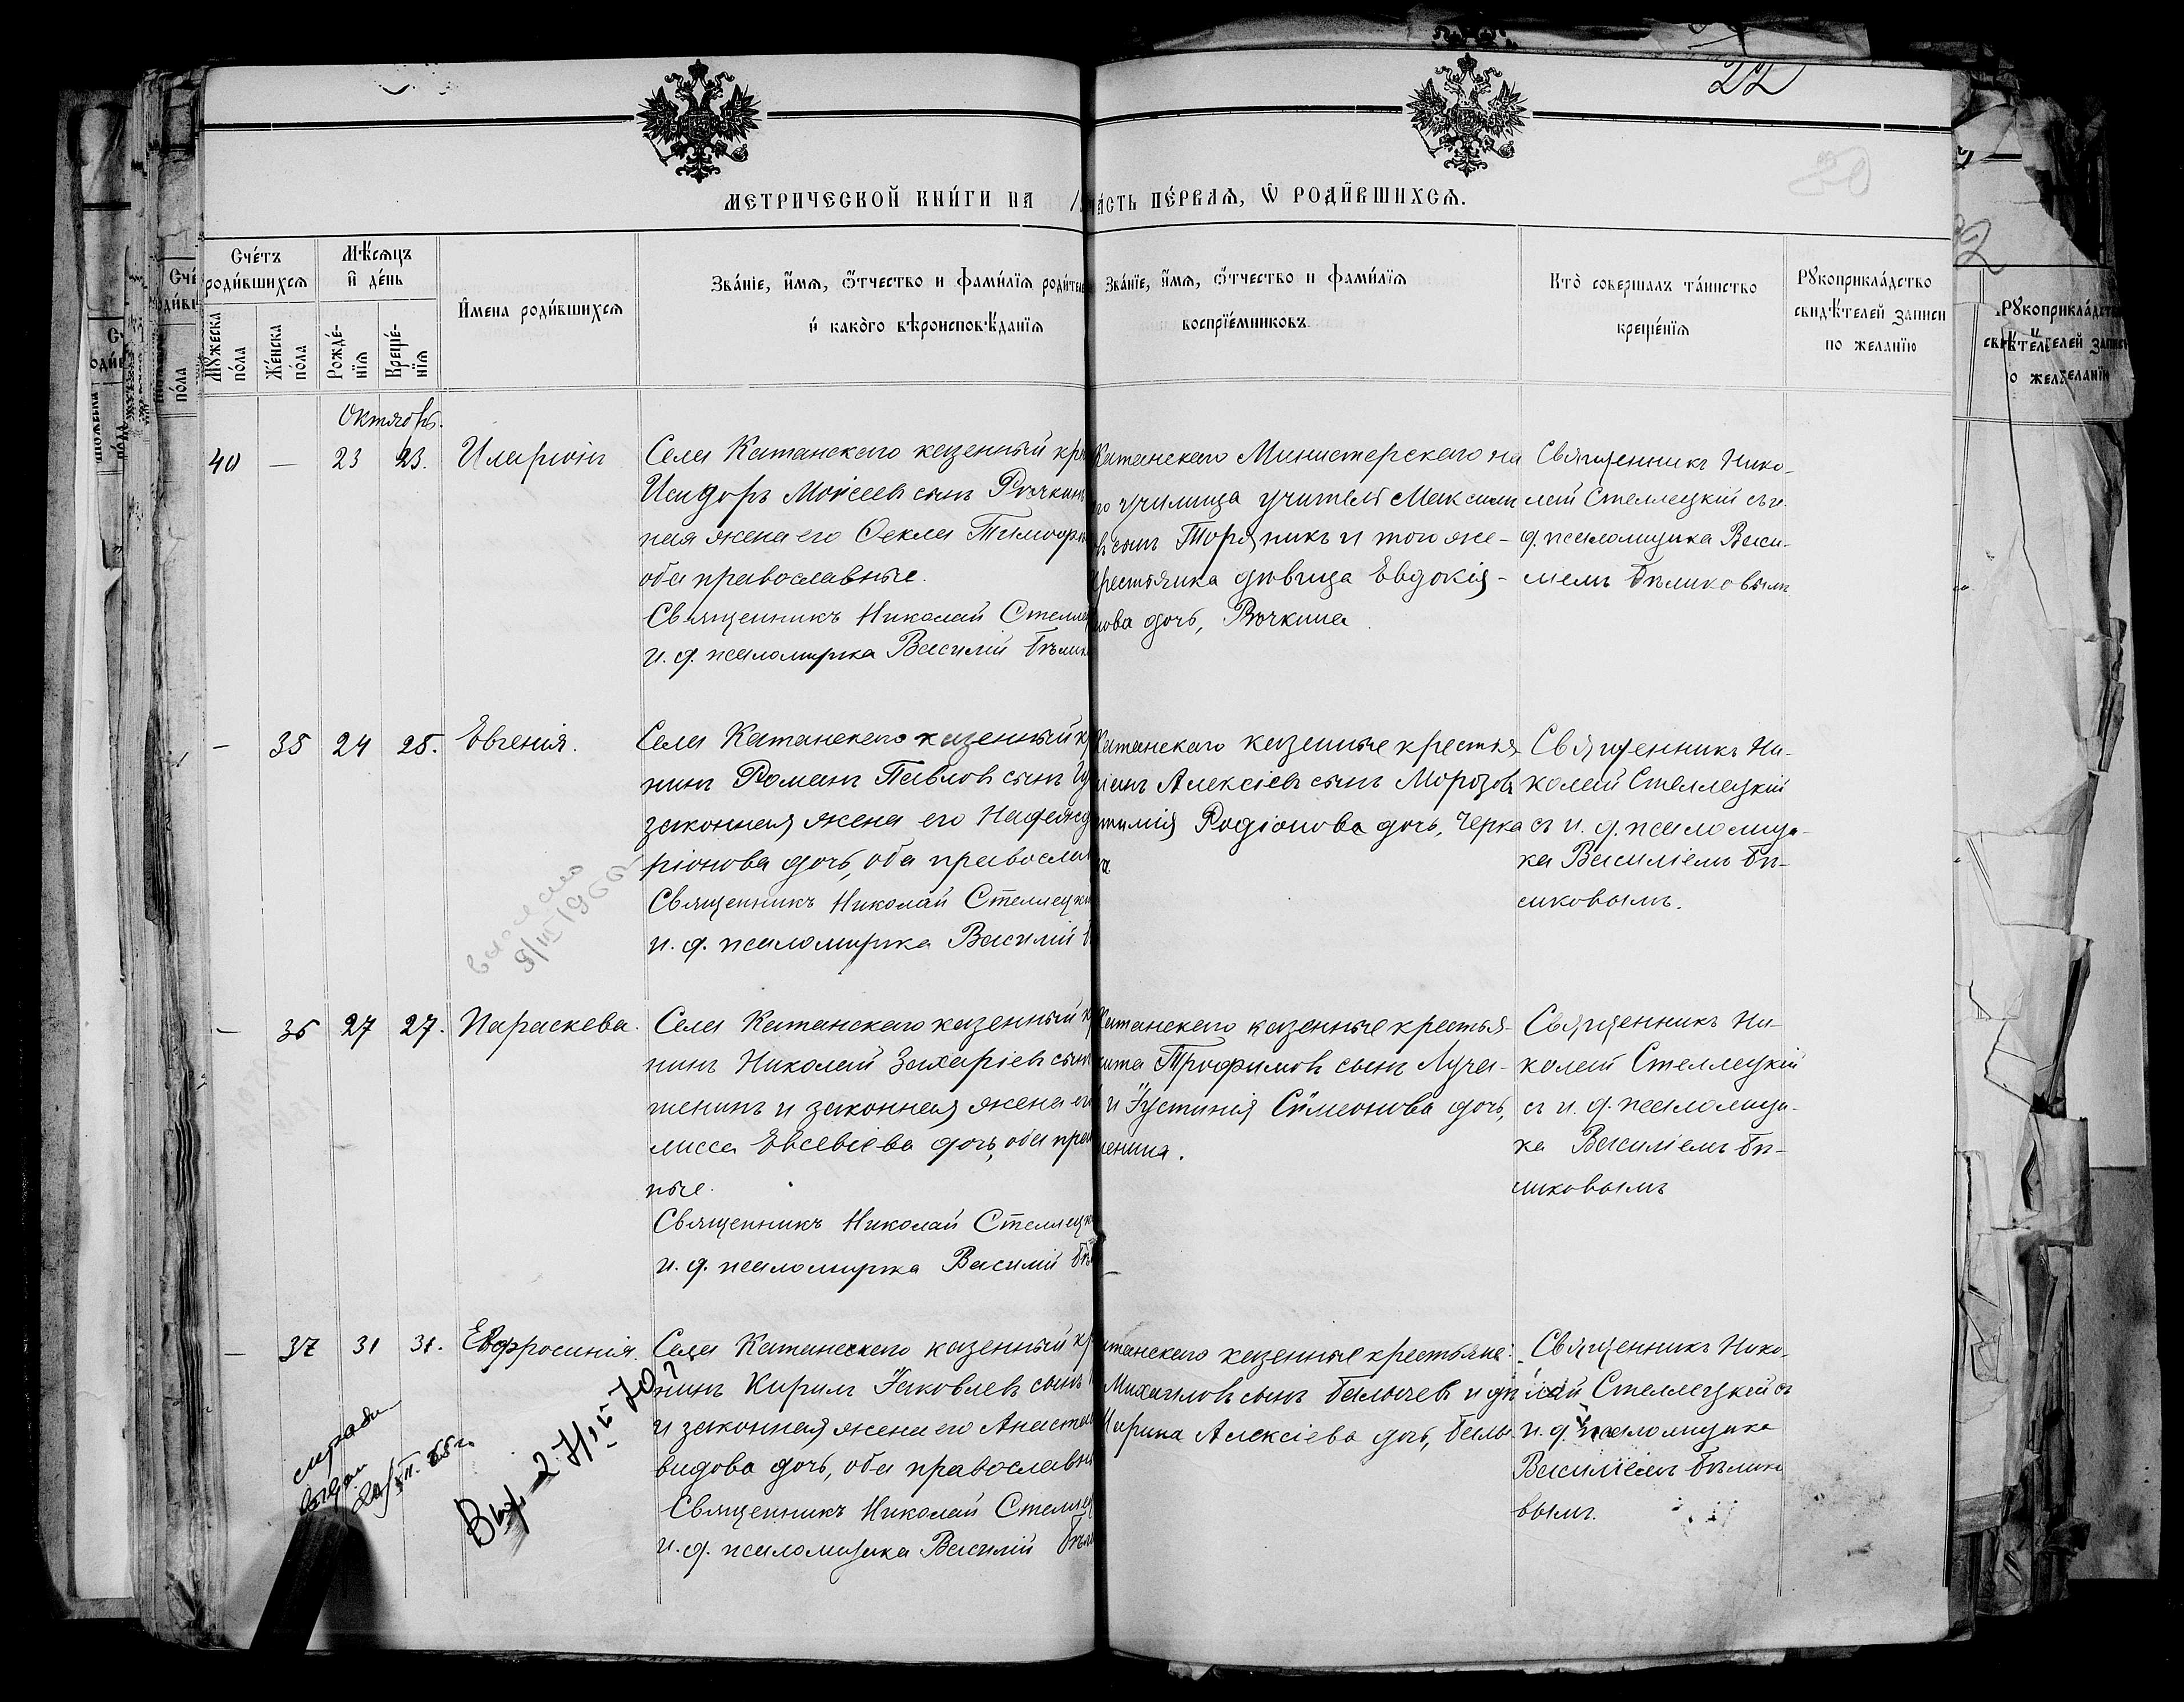 22
20
МЕТРИЧЕСКОЙ КНИ́ГИ НА
ЧА́СТЬ ПЕ́РВАѦ, Ѡ҆ РОДИ́ВШИХСѦ.
Сче́тъ роди́вшихсѧ
Мꙋ́жеска по́ла
Же́нска по́ла
Мѣ́сѧцъ и҆ де́нь
Рожде́-нїѧ
Креще́-нїѧ
И҆мена роди́вшихсѧ
Зва́нїе, и҆́мѧ, ѻ҆́тчество и фами́лїѧ роди́теле
и҆ како́го вѣроисповѣ́данїѧ
Зва́нїе, и҆́мѧ, ѻ҆́тчество и фами́лїѧ
воспрїе́мниковъ
Кто̀ соверша́лъ та́инство
креще́нїѧ
Рꙋкоприкла́дство
свидѣ́телей записи
по жела́нїю
Октябрь.
40 — 23 23. Иларіонъ
Села Катанского казенный кре
Исидоръ Моисеевъ сынъ Рѣчкинъ
ная жена его Ѳекла Тимоѳе
оба православные.
Священникъ Николай Стеллец
и. д. псаломщика Василій Бѣлик
Катанского Министерского на
го училища учитель Максим
въ сынъ Торяникъ и того же-
крестьянка дѣвица Евдокія-
нова дочь, Рѣчкина.
Священникъ Нико-
лай Стеллецкій съ и.
д. псаломщика Васи-
ліемъ Бѣликовымъ
— 35 24 25. Евгенія.
Села Катанского казенный к
нинъ Романъ Павловъ сынъ
законная жена его Надежд
ріонова дочь, оба православ
Священникъ Николай Стеллецкі
и. д. псаломщика Василій
Катанского казенные крестья
Алексіевъ сынъ Морозовъ
Родіонова дочь, Черка
Священникъ Ни-
колай Стеллецкій
съ и. д. псаломщи-
ка Василіемъ Бѣ-
ликовымъ.
— 36 27 27. Параскева.
Села Катанского казенный к
нинъ Николай Захаріевъ сынъ
женинъ и законная жена ег
лисса Евсевіева дочь, оба пра
ные.
Священникъ Николай Стеллецк
и. д. псаломщика Василій Бѣ
Катанского казенные крестья-
кита Трофимовъ сынъ Луча-
и Іустинія Сѵмеонова дочь,
женина.
Священникъ Ни-
колай Стеллецкій
съ и. д. псаломщи-
ка Василіемъ Бѣ-
ликовымъ
— 37 31 31. Евфросинія.
Села Катанского казенный кр
нинъ Кирилъ Іаковлевъ сынъ
и законная жена его Анастас
видова дочь, оба православны
Священникъ Николай Стеллец
и. д. псаломщика Василій Бѣл
атанского казенные крестьяне:
Михаиловъ сынъ Балычевъ и дѣ
Ирина Алексіева дочь, Балы
Священникъ Нико-
лай Стеллецкій съ
и. д. псаломщика
Василіемъ Бѣлико
вымъ.